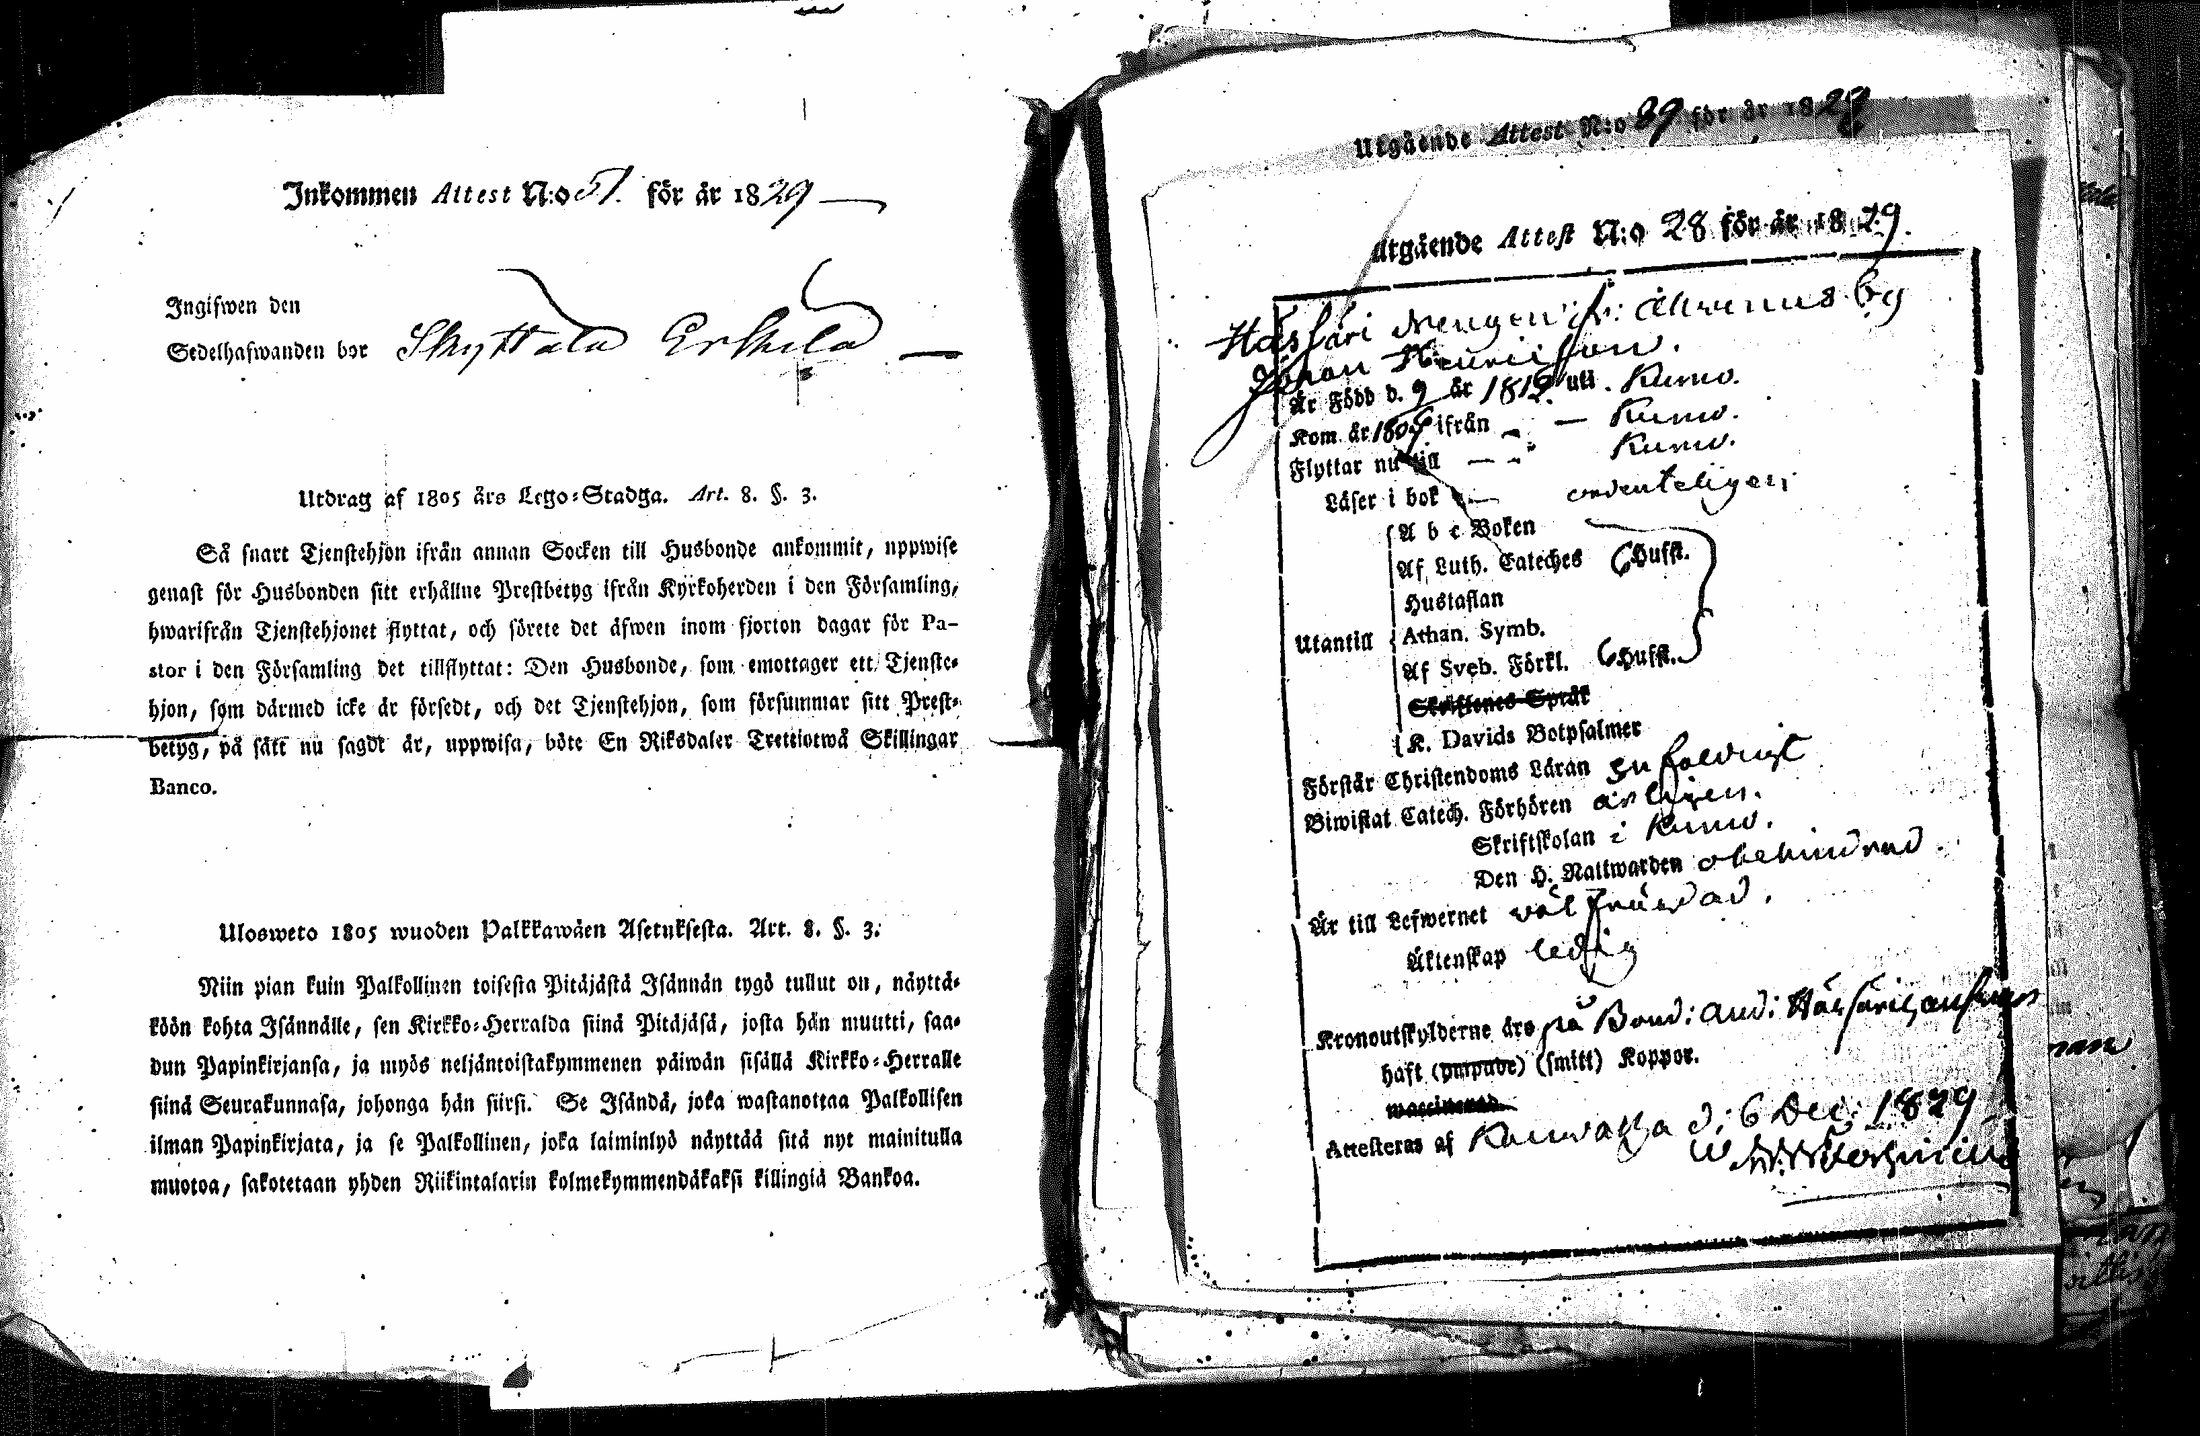 Inkommen Attest N:o 51. för år 1829
Ingifwen den
Sedelhafwanden bor Skyttälä Erkkilä
Utdrag af 1805 års Lego-Stadga. Art. 8. §. 3.
Så snart Tjenstehjon ifrån annan Socken till Husbonde ankommit, uppwise
genast för Husbonden sitt erhållne Prestbetyg ifrån Kyrkoherden i den Församling,
hwarifrån Tjenstehjonet flyttat, och förete det äfwen inom fjorton dagar för Pa-
stor i den Församling det tillflyttat: Den Husbonde, som emottager ett Tjenste-
hjon, som därmed icke är försedt, och det Tjenstehjon, som försummar sitt Prest-
betyg, på sätt nu sagdt är, uppwisa, böte En Riksdaler Trettiotwå Skillingar
Banco.
Ulosweto 1805 wuoden Palkkawäen Asetuksesta. Art. 8. §. 3.
Niin pian kuin Palkollinen toisesta Pitäjästä Isännän tygö tullut on, näyttä-
köön kohta Isännälle, sen Kirkko-Herralda siinä Pitäjäsä, josta hän muutti, saa-
dun Papinkirjansa, ja myös neljäntoistakymmenen päiwän sisällä Kirkko-Herralle
siinä Seurakunnasa, johonga hän siirsi. Se Isändä, joka wastanottaa Palkollisen
ilman Papinkirjata, ja se Palkollinen, joka laiminlyö näyttää sitä nyt mainitulla
muotoa, sakotetaan yhden Riikintalarin kolmekymmendäkaksi killingiä Bankoa.
Utgående Attest N:o 39 för år 1829
Utgående Attest N:o 28 för år 1829.
drengen by
Johan Henricsson.
Är Född d. 9 år 1812 uti Kumo.
Kom år ifrån — Kumo.
Flyttar nu till — Kumo.
Läser i bok — ordenteligen;
A b c Boken
Af Luth. Cateches 6 Hufst.
Hustaflan
Utantill Athan. Symb.
Af Sveb. Förkl. 6 Hufst.
Skriftenes Språk
K. Davids Botpsalmer
Förstår Christendoms Läran enfaldigt
Biwistat Catech. Förhören årligen.
Skriftskolan i Kumo.
Den H. Nattwarden obehindrad.
Är till Lefwernet wäl frägdad.
Äktenskap ledig
Kronoutskylderne års på Bond: And:
haft (utpude) (smitt) Koppor.
waccinerad
Attesteras af d: 6 Dec: 1829